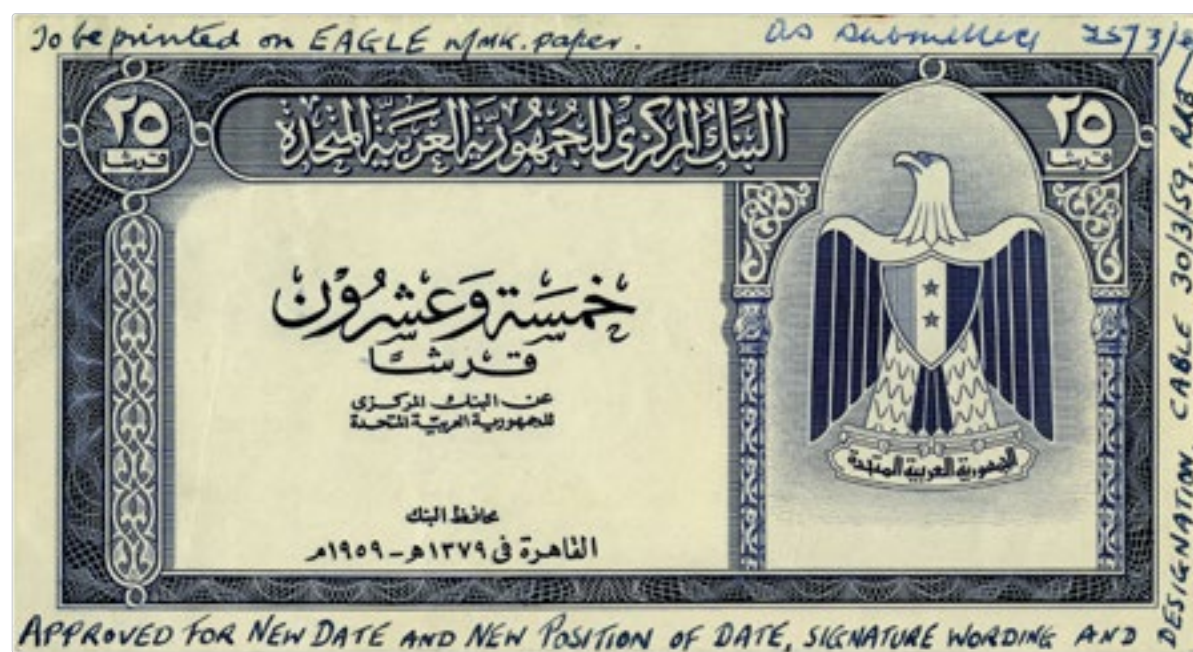 To be printed on EAGLE w/mk. paper.
as submitted
٢٥
قرشا
البنك المركزى للجمهورية العربية المتحدة
٢٥
قرشا
خمسة وعشرون
قرشا
عن البنك المركزى
للجمهورية العربية المتحدة
محافظ البنك
القاهرة فى ١٣٧٩هـ - ١٩٥٩م
الجمهورية العربية المتحدة
APPROVED FOR NEW DATE AND NEW POSITION OF DATE, SIGNATURE WORDING AND
DESIGNATION CABLE 30/3/59.